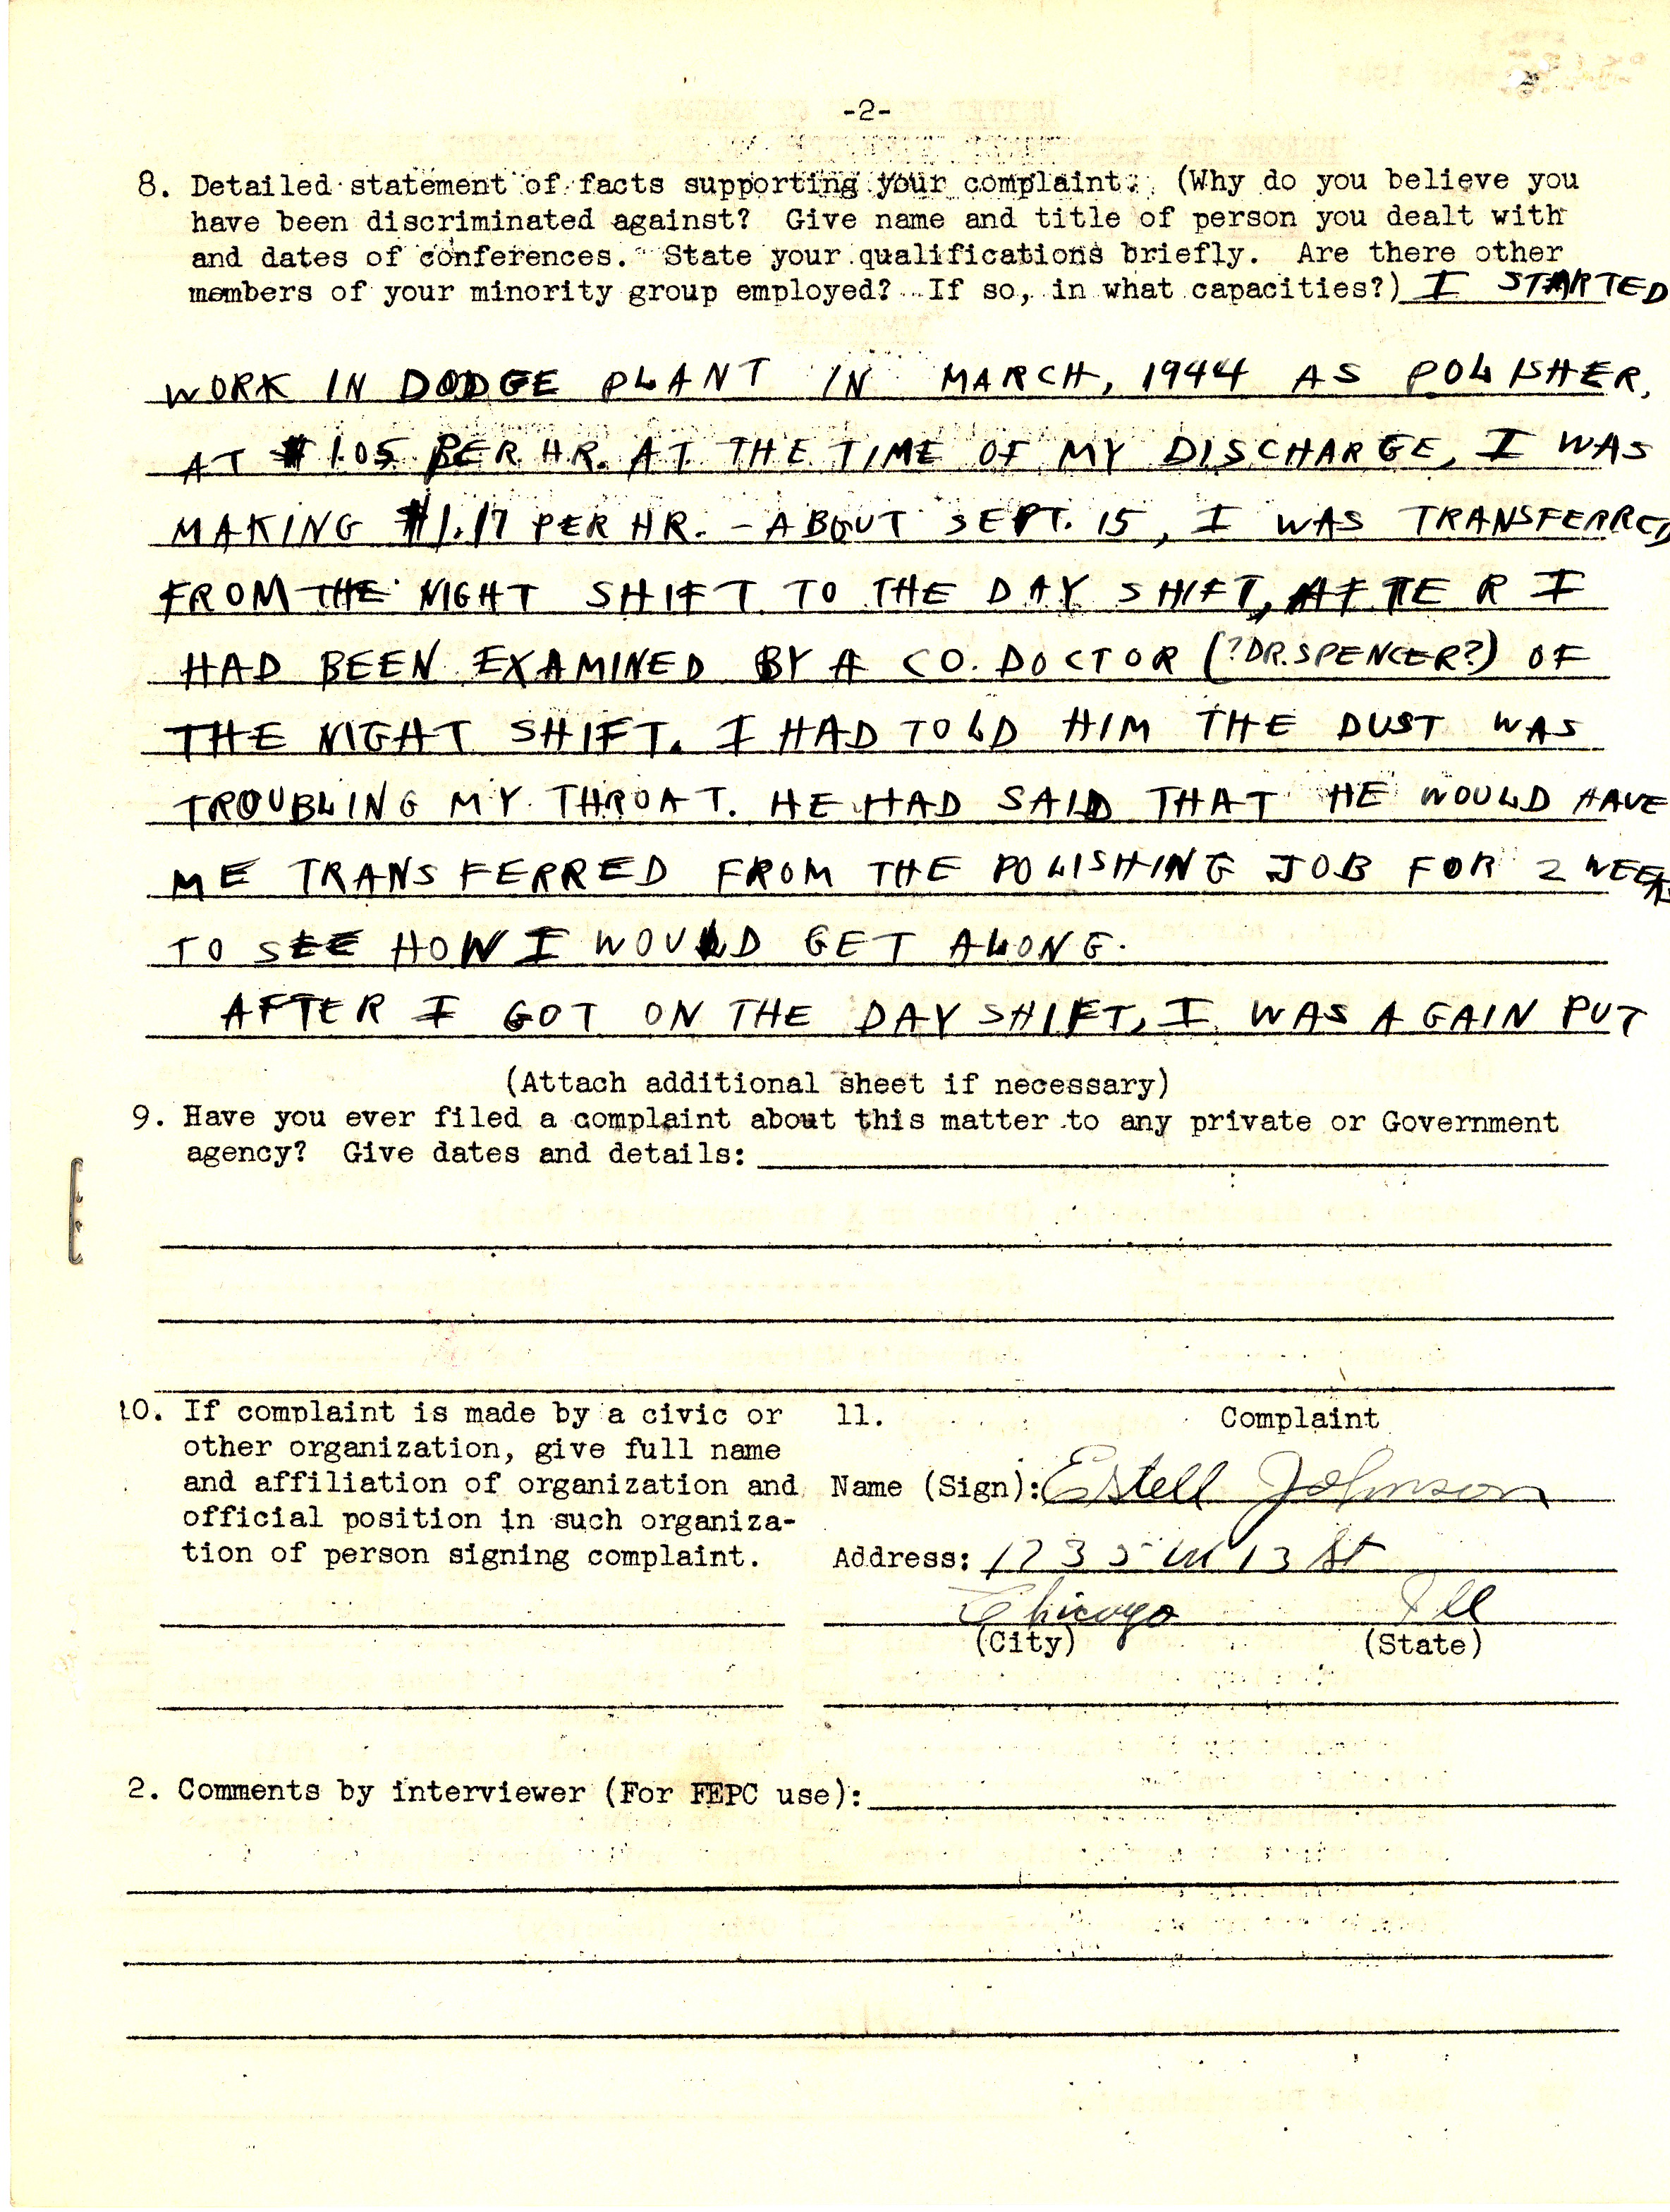 -2-
8. Detailed statement of facts supporting your complaint. (Why do you believe you
have been discriminated against? Give name and title of person you dealt with
and dates of conferences. State your qualifications briefly. Are there other
members of your minority group employed? If so, in what capacities?) I STARTED
WORK IN DODGE PLANT IN MARCH, 1944 AS POLISHER,
AT $1.05 PER HR. AT THE TIME OF MY DISCHARGE, I WAS
MAKING $1.17 PER HR. - ABOUT SEPT. 15, I WAS TRANSFERRED
FROM THE NIGHT SHIFT TO THE DAY SHIFT, AFTER I
HAD BEEN EXAMINED BY A CO. DOCTOR (?DR. SPENCER?) OF
THE NIGHT SHIFT. I HAD TOLD HIM THE DUST WAS
TROUBLING MY THROAT. HE HAD SAID THAT HE WOULD HAVE
ME TRANSFERRED FROM THE POLISHING JOB FOR 2 WEEKS
TO SEE HOW I WOULD GET ALONG.
AFTER I GOT ON THE DAY SHIFT, I WAS AGAIN PUT
(Attach additional sheet if necessary)
9. Have you ever filed a complaint about this matter to any private or Government
agency? Give dates and details:
10. If complaint is made by a civic or
other organization, give full name
and affiliation of organization and
official position in such organiza-
tion of person signing complaint.
11. Complaint
Name (Sign): Estell Johnson
Address: 1235 W 13 St
Chicago Ill
(City) (State)
2. Comments by interviewer (For FEPC use):